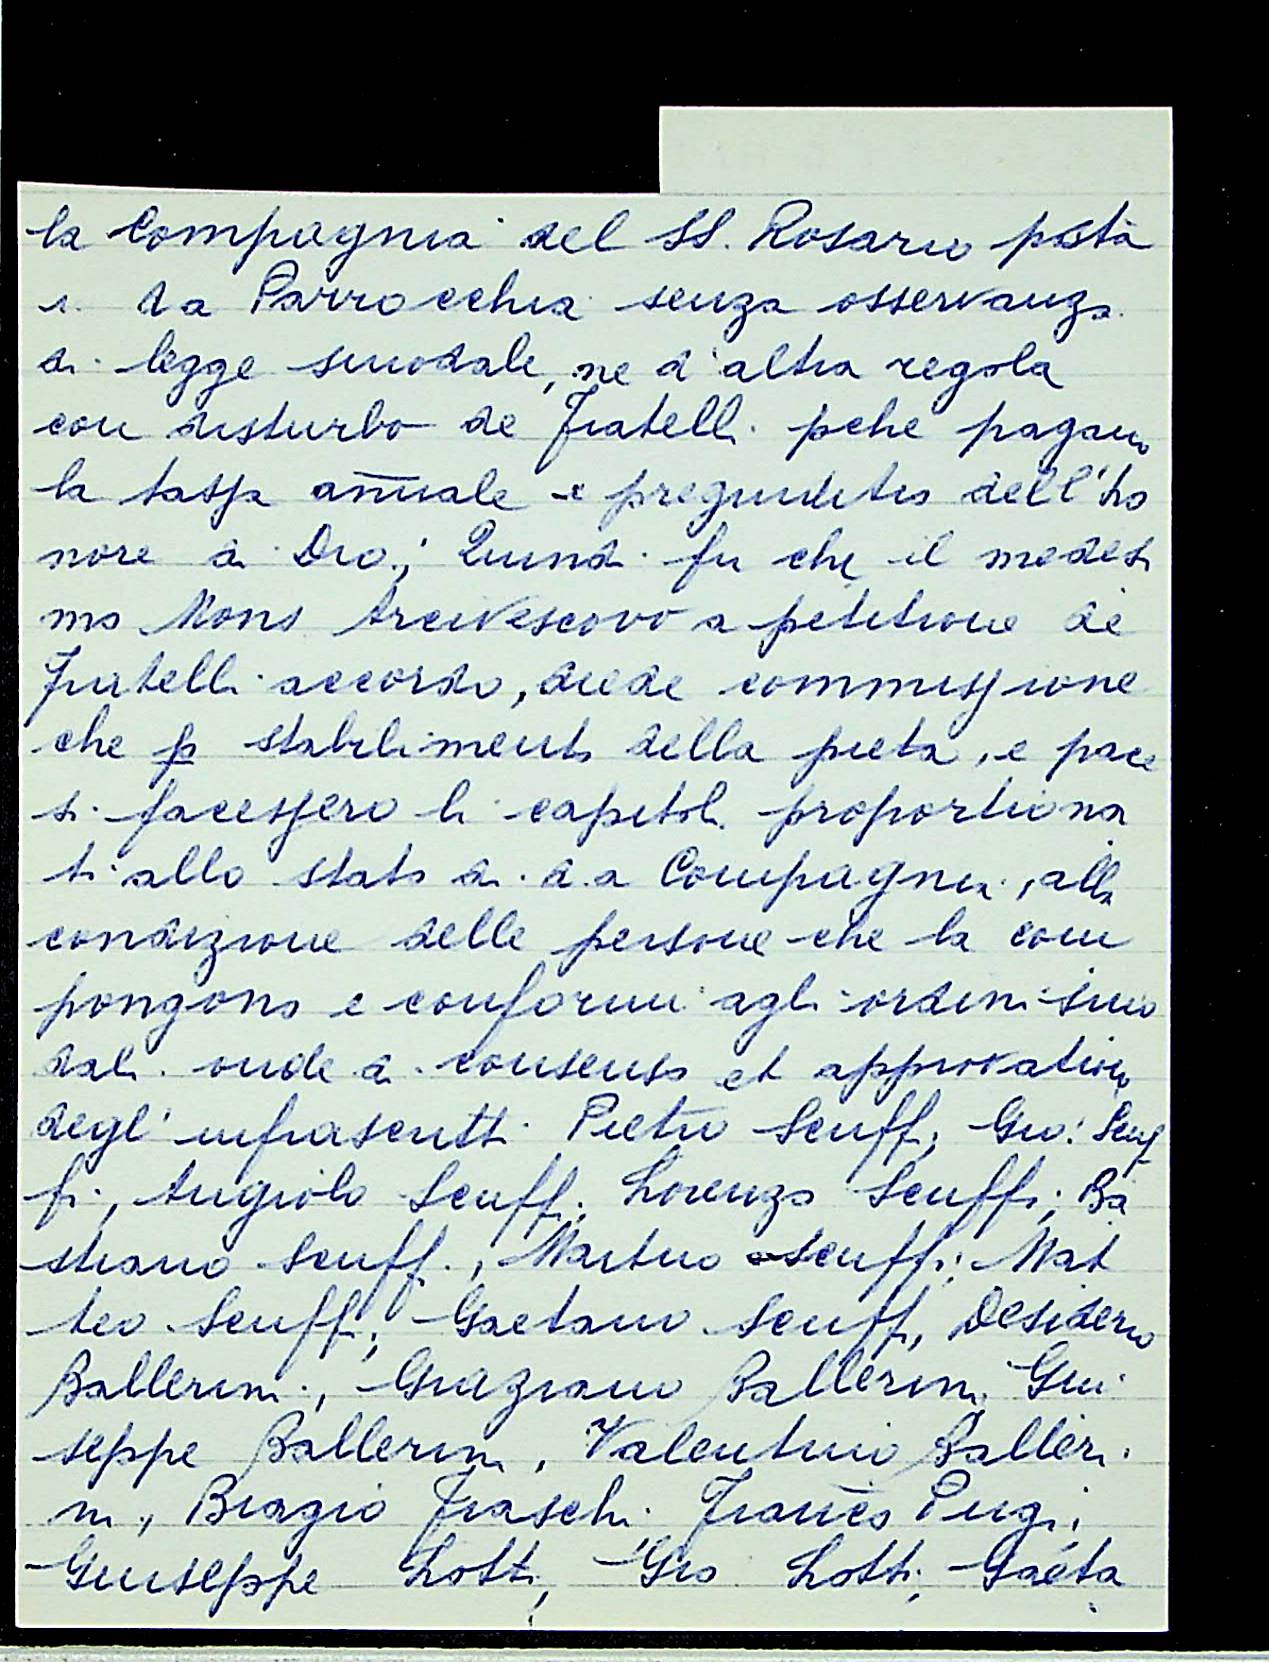 la Compagnia del SS. Rosario posta
i. da Parrocchia senza osservanza
di legge sinodale, ne d'altra regola
con disturbo de Fratelli pche pagano
la tassa añuale e pregiuditio dell'ho
nore di Dio; Quindi fu che il medesi
mo Mons Arcivescovo a petitione de
Fratelli accordo, diede commissione
che p stabilimento della pietà, e pace
si facessero li capitoli proportiona
ti allo stato di d.a Compagnia, alla
condizione delle persone che la com
pongono e conformi agli ordini sino
dali onde di consenso et approvatione
degl' infrascritti Pietro Scuffi, Gio: Scuf
fi, Angiolo Scuffi, Lorenzo Scuffi; Ba
stiano Scuffi, Martino Scuffi; Mat
teo Scuffi; Gaetano Scuffi, Desiderio
Ballerini, Graziano Ballerini, Giu
seppe Ballerini, Valentino Balleri
ni, Biagio Fraschi Frañco Pugi,
Giuseppe Lotti, Gio Lotti, Gaeta